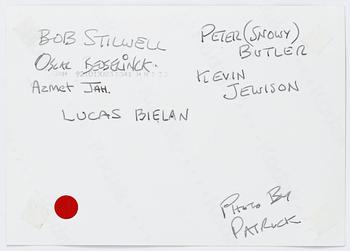 BOB STILWELL
OSCAR BESELINCK.
AZMET JAH.
LUCAS BIELAN
PETER (SNOWY)
BUTLER
KEVIN
JEWISON
PHOTO BY
PATRICK